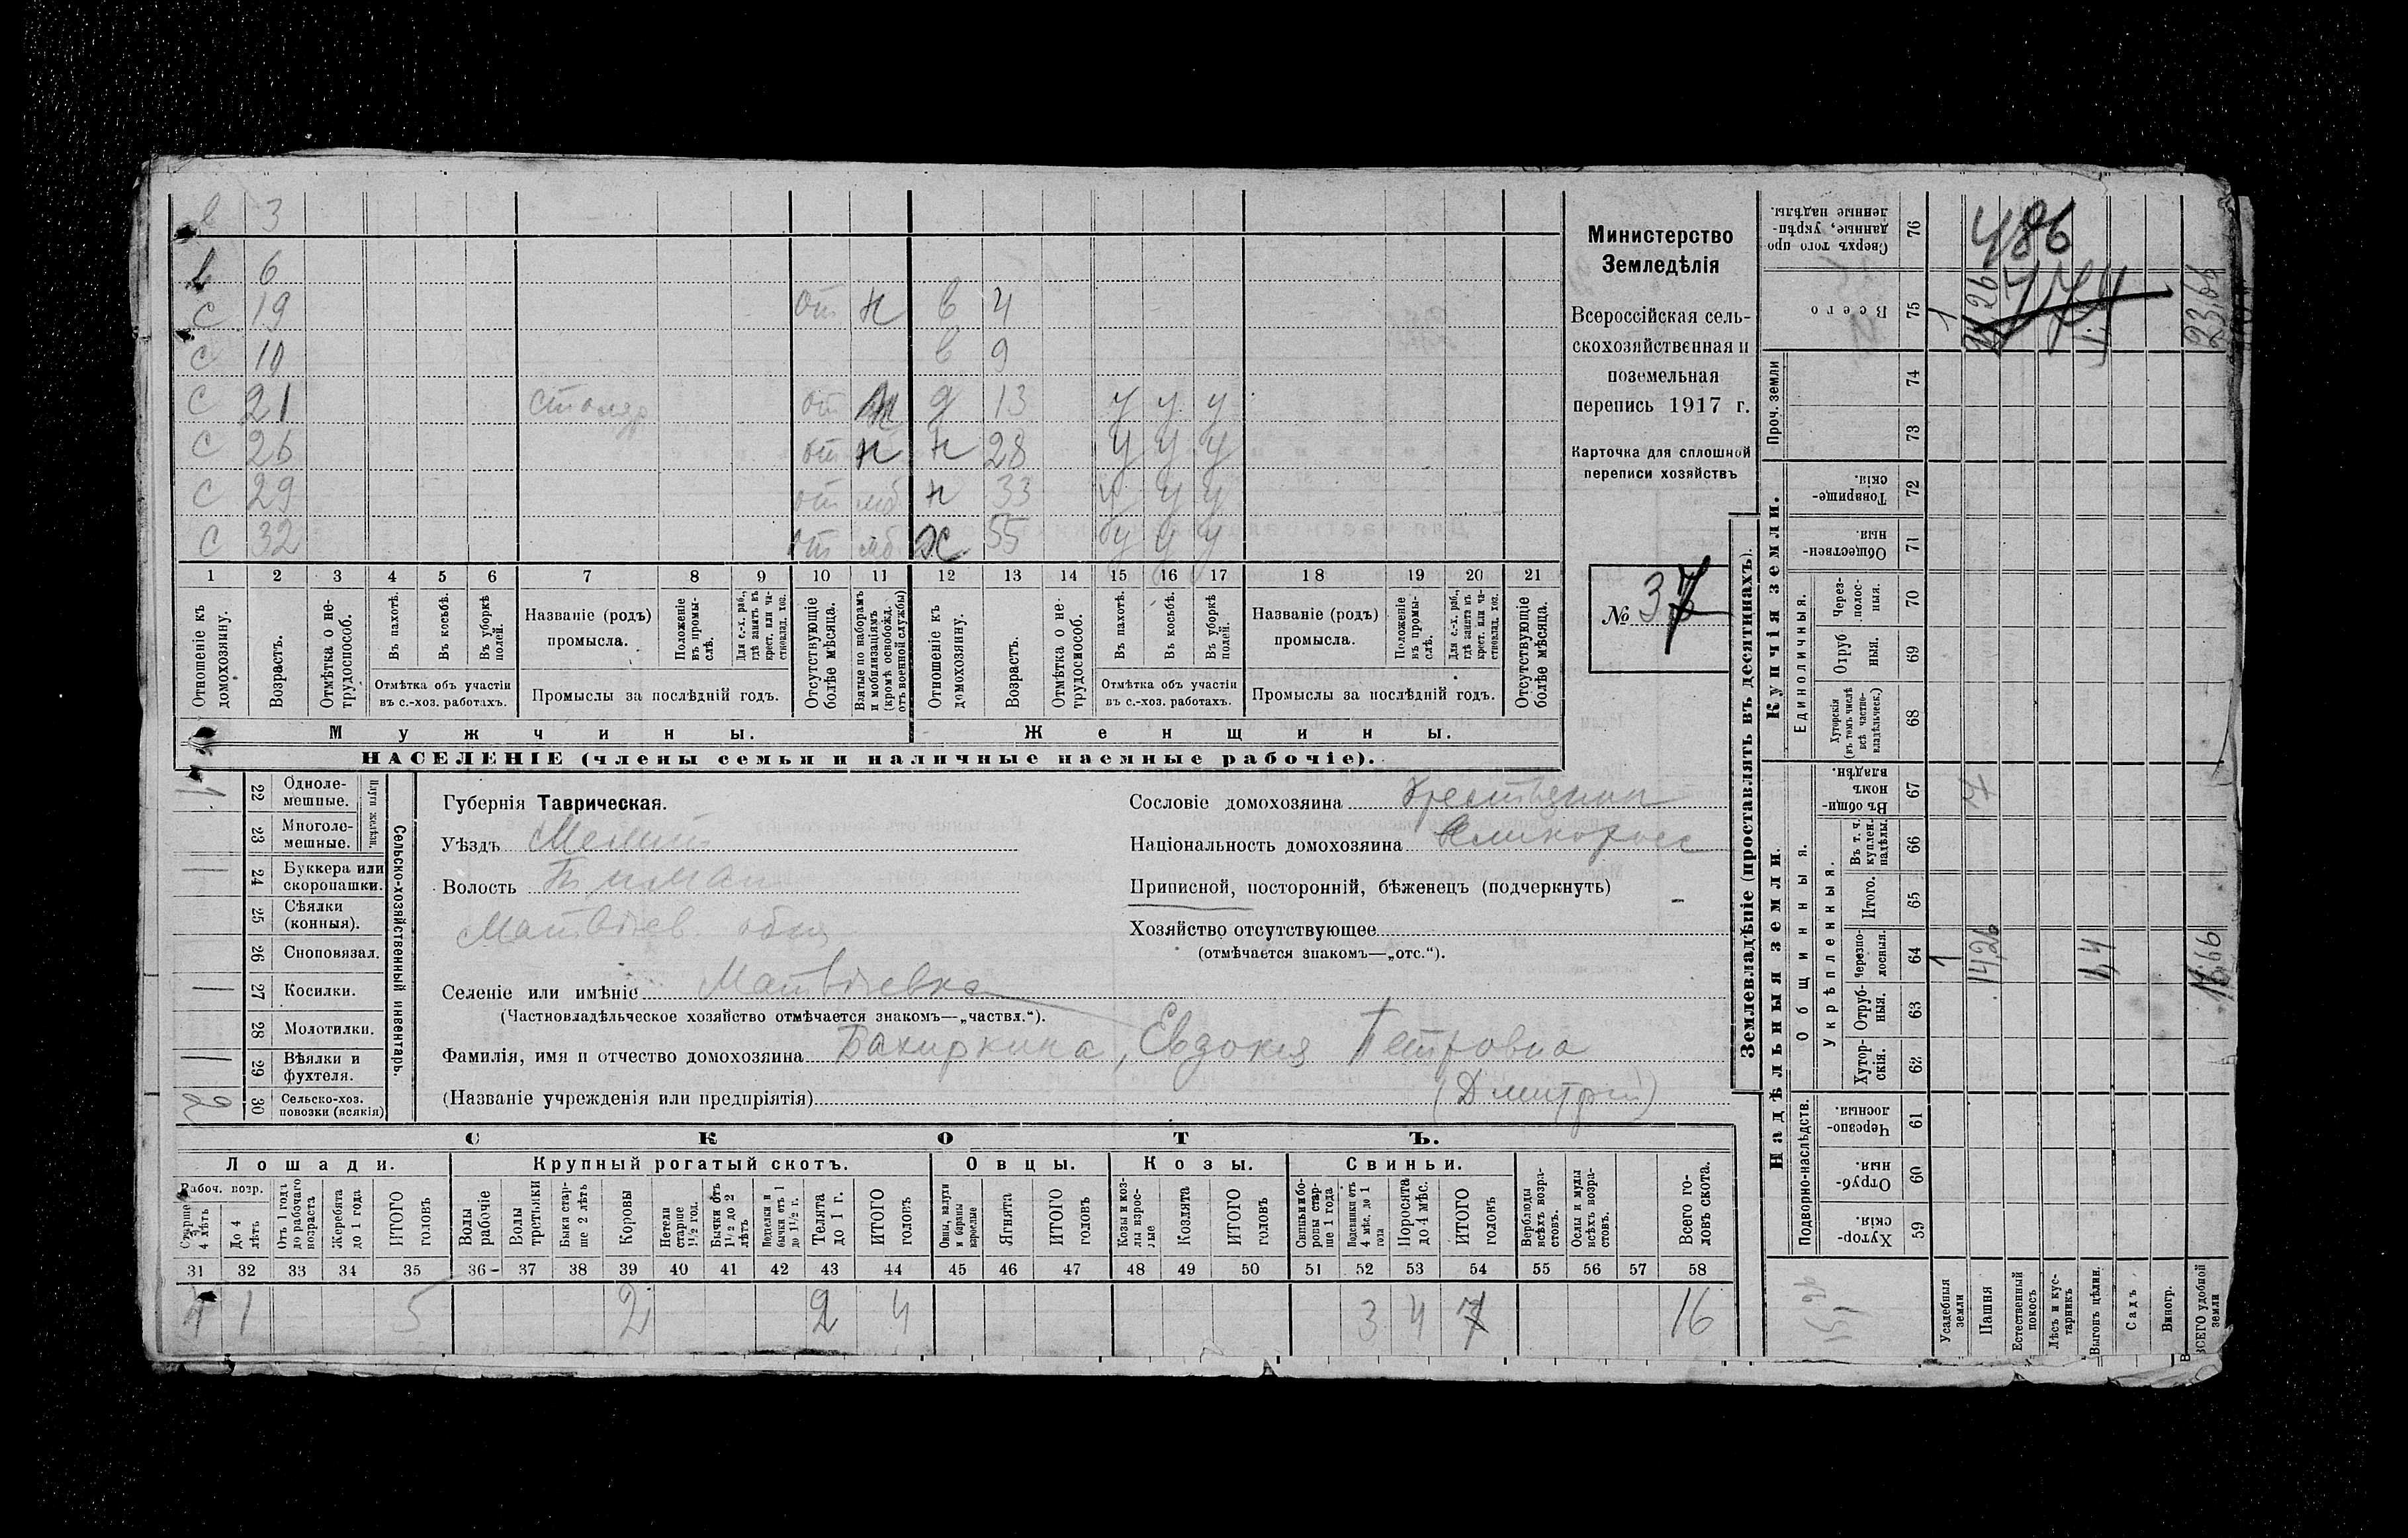 в 3
в 6
с 19 от н в 4
с 10 в 9
с 21 столяр от н д 13 у у у
с 26 от н н 28 у у у
с 29 от мб н 33 у у у
с 32 от мб ж 55 бу у у
1 2 3 4 5 6 7 8 9 10 11 12 13 14 15 16 17 18 19 20 21
Отношеніе къ домохозяину.
Возрастъ.
Отмѣтка о не-трудоспособ.
Въ пахотѣ.
Въ косьбѣ.
Въ уборкѣ полей.
Отмѣтка объ участіи въ с.-хоз. работахъ.
Названіе (родъ) промысла.
Положеніе въ промы-слѣ.
Для с.-х. раб., гдѣ занятъ въ крест. или ча-стновлад. хоз.
Промыслы за послѣдній годъ.
Отсутствующіе болѣе мѣсяца.
Взятые по наборамъ и мобилизаціямъ (кромѣ освобожд. отъ военной службы)
Отношеніе къ домохозяину.
Возрастъ.
Отмѣтка о не-трудоспособ.
Въ пахотѣ.
Въ косьбѣ.
Въ уборкѣ полей.
Отмѣтка объ участіи въ с.-хоз. работахъ.
Названіе (родъ) промысла.
Положеніе въ промы-слѣ.
Для с.-х. раб., гдѣ занятъ въ крест. или ча-стновлад. хоз.
Промыслы за послѣдній годъ.
Отсутствующіе болѣе мѣсяца.
Мужчины.
Женщины.
НАСЕЛЕНІЕ (члены семьи и наличные наемные рабочіе).
Министерство
Земледѣлія
Всероссійская сель-
скохозяйственная и
поземельная
перепись 1917 г.
Карточка для сплошной
переписи хозяйствъ
№ 37
Сельско-хозяйственный инвентарь.
Плуги желѣзн.
1 22 Одноле-мешные.
23 Многоле-мешные.
1 24 Буккера или скоропашки.
25 Сѣялки (конныя).
26 Сноповязал.
1 27 Косилки.
28 Молотилки.
1 29 Вѣялки и фухтеля.
2 30 Сельско-хоз. повозки (всякія)
Губернія Таврическая.
Уѣздъ Мелит
Волость
Матвѣев. общ
Селеніе или имѣніе Матвѣевка
(Частновладѣльческое хозяйство отмѣчается знакомъ—„частвл.“).
Фамилія, имя и отчество домохозяина Бахиркина, Евдокия Петровна
(Названіе учрежденія или предпріятія) (Дмитрий)
Сословіе домохозяина Крестьянин
Національность домохозяина великоросс
Приписной, посторонній, бѣженецъ (подчеркнуть)
Хозяйство отсутствующее
(отмѣчается знакомъ—„отс.“).
СКОТЪ.
Лошади. Крупный рогатый скотъ. Овцы. Козы. Свиньи.
Рабоч. возр.
Старше 4 лѣтъ
До 4 лѣтъ
Отъ 1 года до рабочаго возраста
Жеребята до 1 года
ИТОГО головъ
Волы рабочіе
Волы третьяки
Быки стар-ше 2 лѣтъ
Коровы
Нетели старше 1½ год.
Бычки отъ 1½ до 2 лѣтъ
Подтелки и бычки отъ 1 до 1½ г.
Телята до 1 г.
ИТОГО головъ
Овцы, валухи и бараны взрослые
Ягнята
ИТОГО головъ
Козы и коз-лы взрос-лые
Козлята
ИТОГО головъ
Свиньи и бо-ровы стар-ше 1 года
Подсвинки отъ 4 мѣс. до 1 года
Поросята до 4 мѣс.
ИТОГО головъ
Верблюды всѣхъ возра-стовъ.
Ослы и мулы всѣхъ возра-стовъ.
Всего го-ловъ скота.
31 32 33 34 35 36 37 38 39 40 41 42 43 44 45 46 47 48 49 50 51 52 53 54 55 56 57 58
4 1 5 2 2 4 3 4 7 16
Землевладѣніе (проставлять въ десятинахъ).
Купчія земли.
Надѣльныя земли.
Проч. земли
Единоличныя.
Общинныя.
Укрѣпленныя.
Подворно-наслѣдств.
Сверхъ того про данные, укрѣп-ленные надѣлы. 76
Всего 75
74
73
Товарище-скія. 72
Обществен-ныя 71
Через-полос-ныя. 70
Отруб ныя. 69
Хуторскія (въ томъ числѣ всѣ частно-владѣльческ.) 68
Въ общи-номъ владѣн. 67
Въ т. ч. куплен. надѣлы. 66
Итого. 65
Черезпо-лосныя. 64
Отруб-ныя. 63
Хутор-скія. 62
Черезпо-лосныя. 61
Отруб-ныя. 60
Хутор-скія. 59
Усадебныя земли
Пашня
Естественный покосъ
Лѣсъ и кус-тарникъ
Выгонъ цѣлин.
Садъ
Виногр.
ВСЕГО удобной земли
486
1
23,66
7
1
14,26
1,4
16,66